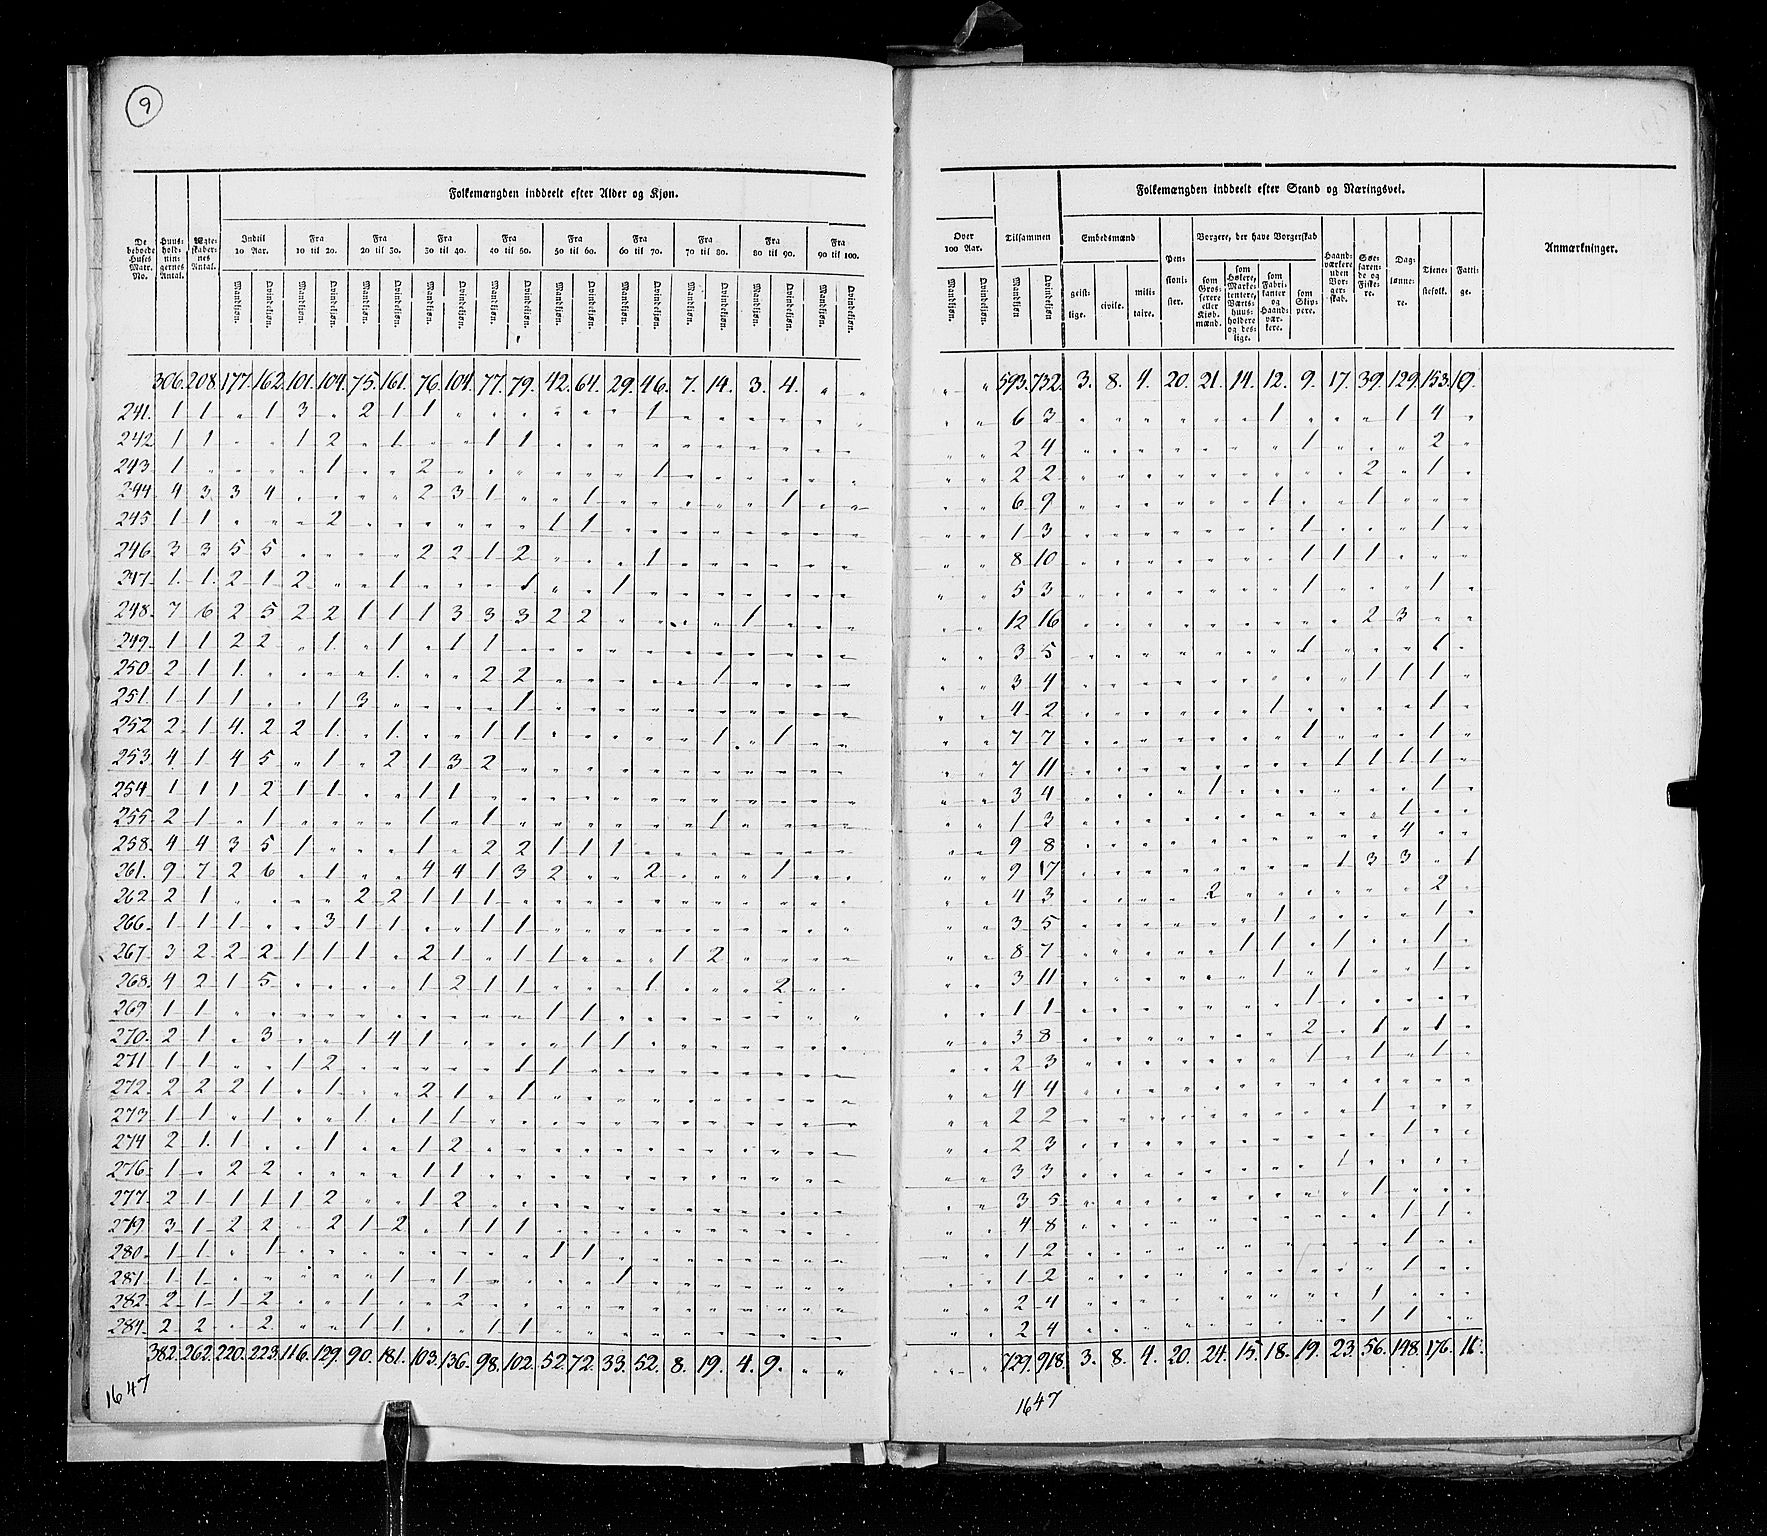 9
Folkemængden inddeelt efter Alder og Kjøn.
De beboede Huses Matr. No.
Huusholdningernes Antal.
Ægteskabernes Antal.
Indtil 10 Aar.
Fra 10 til 20.
Fra 20 til 30.
Fra 30 til 40.
Fra 40 til 50.
Fra 50 til 60.
Fra 60 til 70.
Fra 70 til 80.
Fra 80 til 90.
Fra 90 til 100.
Mandkjøn. Qvindekjøn. Mandkjøn. Qvindekjøn. Mandkjøn. Qvindekjøn. Mandkjøn. Qvindekjøn. Mandkjøn. Qvindekjøn. Mandkjøn. Qvindekjøn. Mandkjøn. Qvindekjøn. Mandkjøn. Qvindekjøn. Mandkjøn. Qvindekjøn. Mandkjøn. Qvindekjøn.
306. 208. 177. 162. 101. 104. 75. 161. 76. 104. 77. 79. 42. 64. 29. 46. 7. 14. 3. 4. " "
241. 1 1 " 1 3 " 2 1 1 " " " " " " 1 " " " " " "
242 1 1 " " 1 2 " 1 " " 1 1 " " " " " " " " " "
243 1 " " " " 1 " " 2 " " " " " " 1 " " " " " "
244 4 3 3 4 " " " " 2 3 1 " " 1 " " " " " 1 " "
245 1 1 " " " 2 " " " " " " 1 1 " " " " " " " "
246 3 3 5 5 " " " " 2 2 1 2 " " " 1 " " " " " "
247 1. 1. 2 1 2 " " 1 " " " 1 " " 1 " " " " " " "
248. 7 6 2 5 2 2 1 1 1 3 3 3 2 2 " " " " 1 " " "
249. 1 1 2 2 " 1. " 1 " 1 1 " " " " " " " " " " "
250. 2 1 1. " " " " 1. " " 2 2 " " " " " 1 " " " "
251. 1 1 1 " " 1 3 " " " " 1 " " " " " " " " " "
252 2 1 4. 2 2 1. " 1. " " 1 1 " " " " " 1 " 1 " "
253. 4 1 4 5 " 1 " 2 1 3 2 " " " " " " " " " " "
254 1 1 1 2 1 1 " " 1 1 " " " " " " " " " " " "
255 2 1 " 1 " " " " 1 " 1 " " " " " " 1 " " " "
258. 4 4 3 5 1 " " " 1 " 2 2 1 1 1 " " " " " " "
261. 9 7 2 6 " 1 " " 4 4 1 3 2 " " 2 " " " 1 " "
262 2 1 " " " " 2 2 1 1 1 " " " " " " " " " " "
266 1 1 1 " " 3 1 1 " " 1 1 " " " " " " " " " "
267 3 2 2 2 1 1 1 " 2 1 " 1 1 " " " 1 2 " " " "
268. 4 2 1 5 " " " " 1 2 1 1 " " " 1 " " " 2 " "
269 1 1 " " " " " " " " " " 1 1 " " " " " " " "
270. 2 1 " 3 " " 1 4 1 " " " " 1 1 " " " " " " "
271 1 1 " " 1 2 " " " " " 1 1 " " " " " " " " "
272. 2 2 2 1 " 1 " " 2 1 " 1 " " " " " " " " " "
273 1 1 " 1 " " 1 " 1 1 " " " " " " " " " " " "
274 2 1. 1 " " 1 " " 1 2 " " " " " " " " " " " "
276. 1 " 2 2 " " " " 1 1 " " " " " " " " " " " "
277. 2 1 1 1 1 2 " " 1 2 " " " " " " " " " " " "
279. 3 1 2 2 " 2 1 2 " 1 1 1 " " " " " " " " " "
280. 1 1 " 1 " " " " " " " " 1 1 " " " " " " " "
281. 1 1 " " " " " 1 " 1 " " " " 1 " " " " " " "
282. 2 1 1 2 " " 1 " " 2 " " " " " " " " " " " "
284. 2 2 " 2. " " 1 1 " " 1 1 " " " " " " " " " "
382. 262. 220. 223. 116. 129. 90. 181. 103. 136. 98. 102. 52. 72. 33. 52. 8. 19. 4. 9. " "
1647
Over 100 Aar.
Mandkjøn. Qvindekjøn.
Tilsammen
Mandkjøn Qvindekjøn
Folkemængden inddeelt efter Stand og Næringsvei.
Embedsmænd
geistlige. civile. militaire.
Pensionister.
Borgere, der have Borgerskab
som Grosserere eller Kjøbmænd.
som Høkere, Marketentere, Værtshuusholdere og deslige.
som Fabrikanter og Haandværkere.
som Skippere.
Haandværkere uden Borgerskab.
Søefarende og Fiskere.
Daglønnere.
Tjenestefolk.
Fattige.
Anmærkninger.
" " 593. 732. 3. 8. 4. 20. 21. 14. 12. 9. 17. 39. 129. 153. 10.
" " 6 3 " " " " " " 1 " " " 1 4 "
" " 2 4 " " " " " " " 1 " " " 2 "
" " 2 2 " " " " " " " " " 2 " 1 "
" " 6 9 " " " " " " 1 " " 1 " " "
" " 1 3 " " " " " " " 1 " " " 1 "
" " 8 10 " " " " " " " 1 1 1 " " "
" " 5 3 " " " " " " " 1 " " " 1 "
" " 12 16 " " " " " " " " " 2 3 " "
" " 3 5 " " " " " " " 1 " " " 1 "
" " 3 4 " " " " " " " " " 1 1 1 "
" " 4 2 " " " " " " 1 " " " " 1 "
" " 7 7 " " " " " " " 1 " " " 1 "
" " 7 11 " " " " " " " " 1 1 1 1 "
" " 3 4 " " " " 1 " " " " " " 1 "
" " 1 3 " " " " " " " " " " 1 " "
" " 9 8 " " " " " " " " " " 4 " "
" " 9 17 " " " " " " " " 1 3 3 " 1
" " 4 3 " " " " 2 " " " " " " 2 "
" " 3 5 " " " " " " 1 " " " " 1 "
" " 8 7 " " " " " 1 1 " 1 " " 1 "
" " 3 11 " " " " " " 1 " 1 " " 1 "
" " 1 1 " " " " " " " 1 " " " " "
" " 3 8 " " " " " " " 2 " 1 " 1 "
" " 2 3 " " " " " " " 1 " 1 " 1 "
" " 4 4 " " " " " " " " " " " " "
" " 2 2 " " " " " " " " " 1 " " "
" " 2 3 " " " " " " " " " " 1 " "
" " 3 3 " " " " " " " " 1 " " " "
" " 3 5 " " " " " " " " " 1 " " "
" " 4 8 " " " " " " " " " " 1 1 "
" " 1 2 " " " " " " " " " " 1 " "
" " 1 2 " " " " " " " " " " 1 " "
" " 2 4 " " " " " " " " " 1 " " "
" " 2 4 " " " " " " " " " 1 1 " "
" " 729. 918. 3. 8. 4. 20. 24. 15. 18. 19. 23. 56. 148. 176. 11.
1647